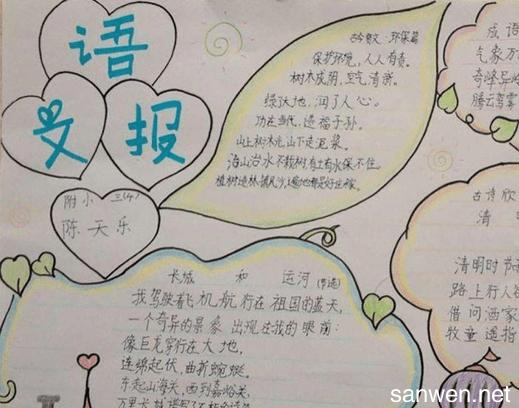 语
文
报
附小 三(4)
陈天乐
古今贤文·环保篇
保护环境,人人有责。
树木成荫,空气清新。
绿沃地,润了人心。
功在当代,造福子孙。
山上树木光,山下走泥浆。
海山治水不栽树,有土有水保不住。
植树造林,挡风沙,遍地都是好庄稼。
成语
气象万
奇峰异
腾云驾雾
古诗欣
清 明
清明时节
路上行人
借问酒家
牧童遥指
长城 和 运河(节选)
我驾驶着飞机航行在祖国的蓝天,
一个奇异的景象出现在我的眼前:
像巨龙穿行在大地,
连绵起伏,曲折蜿蜒。
东起山海关,西到嘉峪关,
万里长
sanwen.net